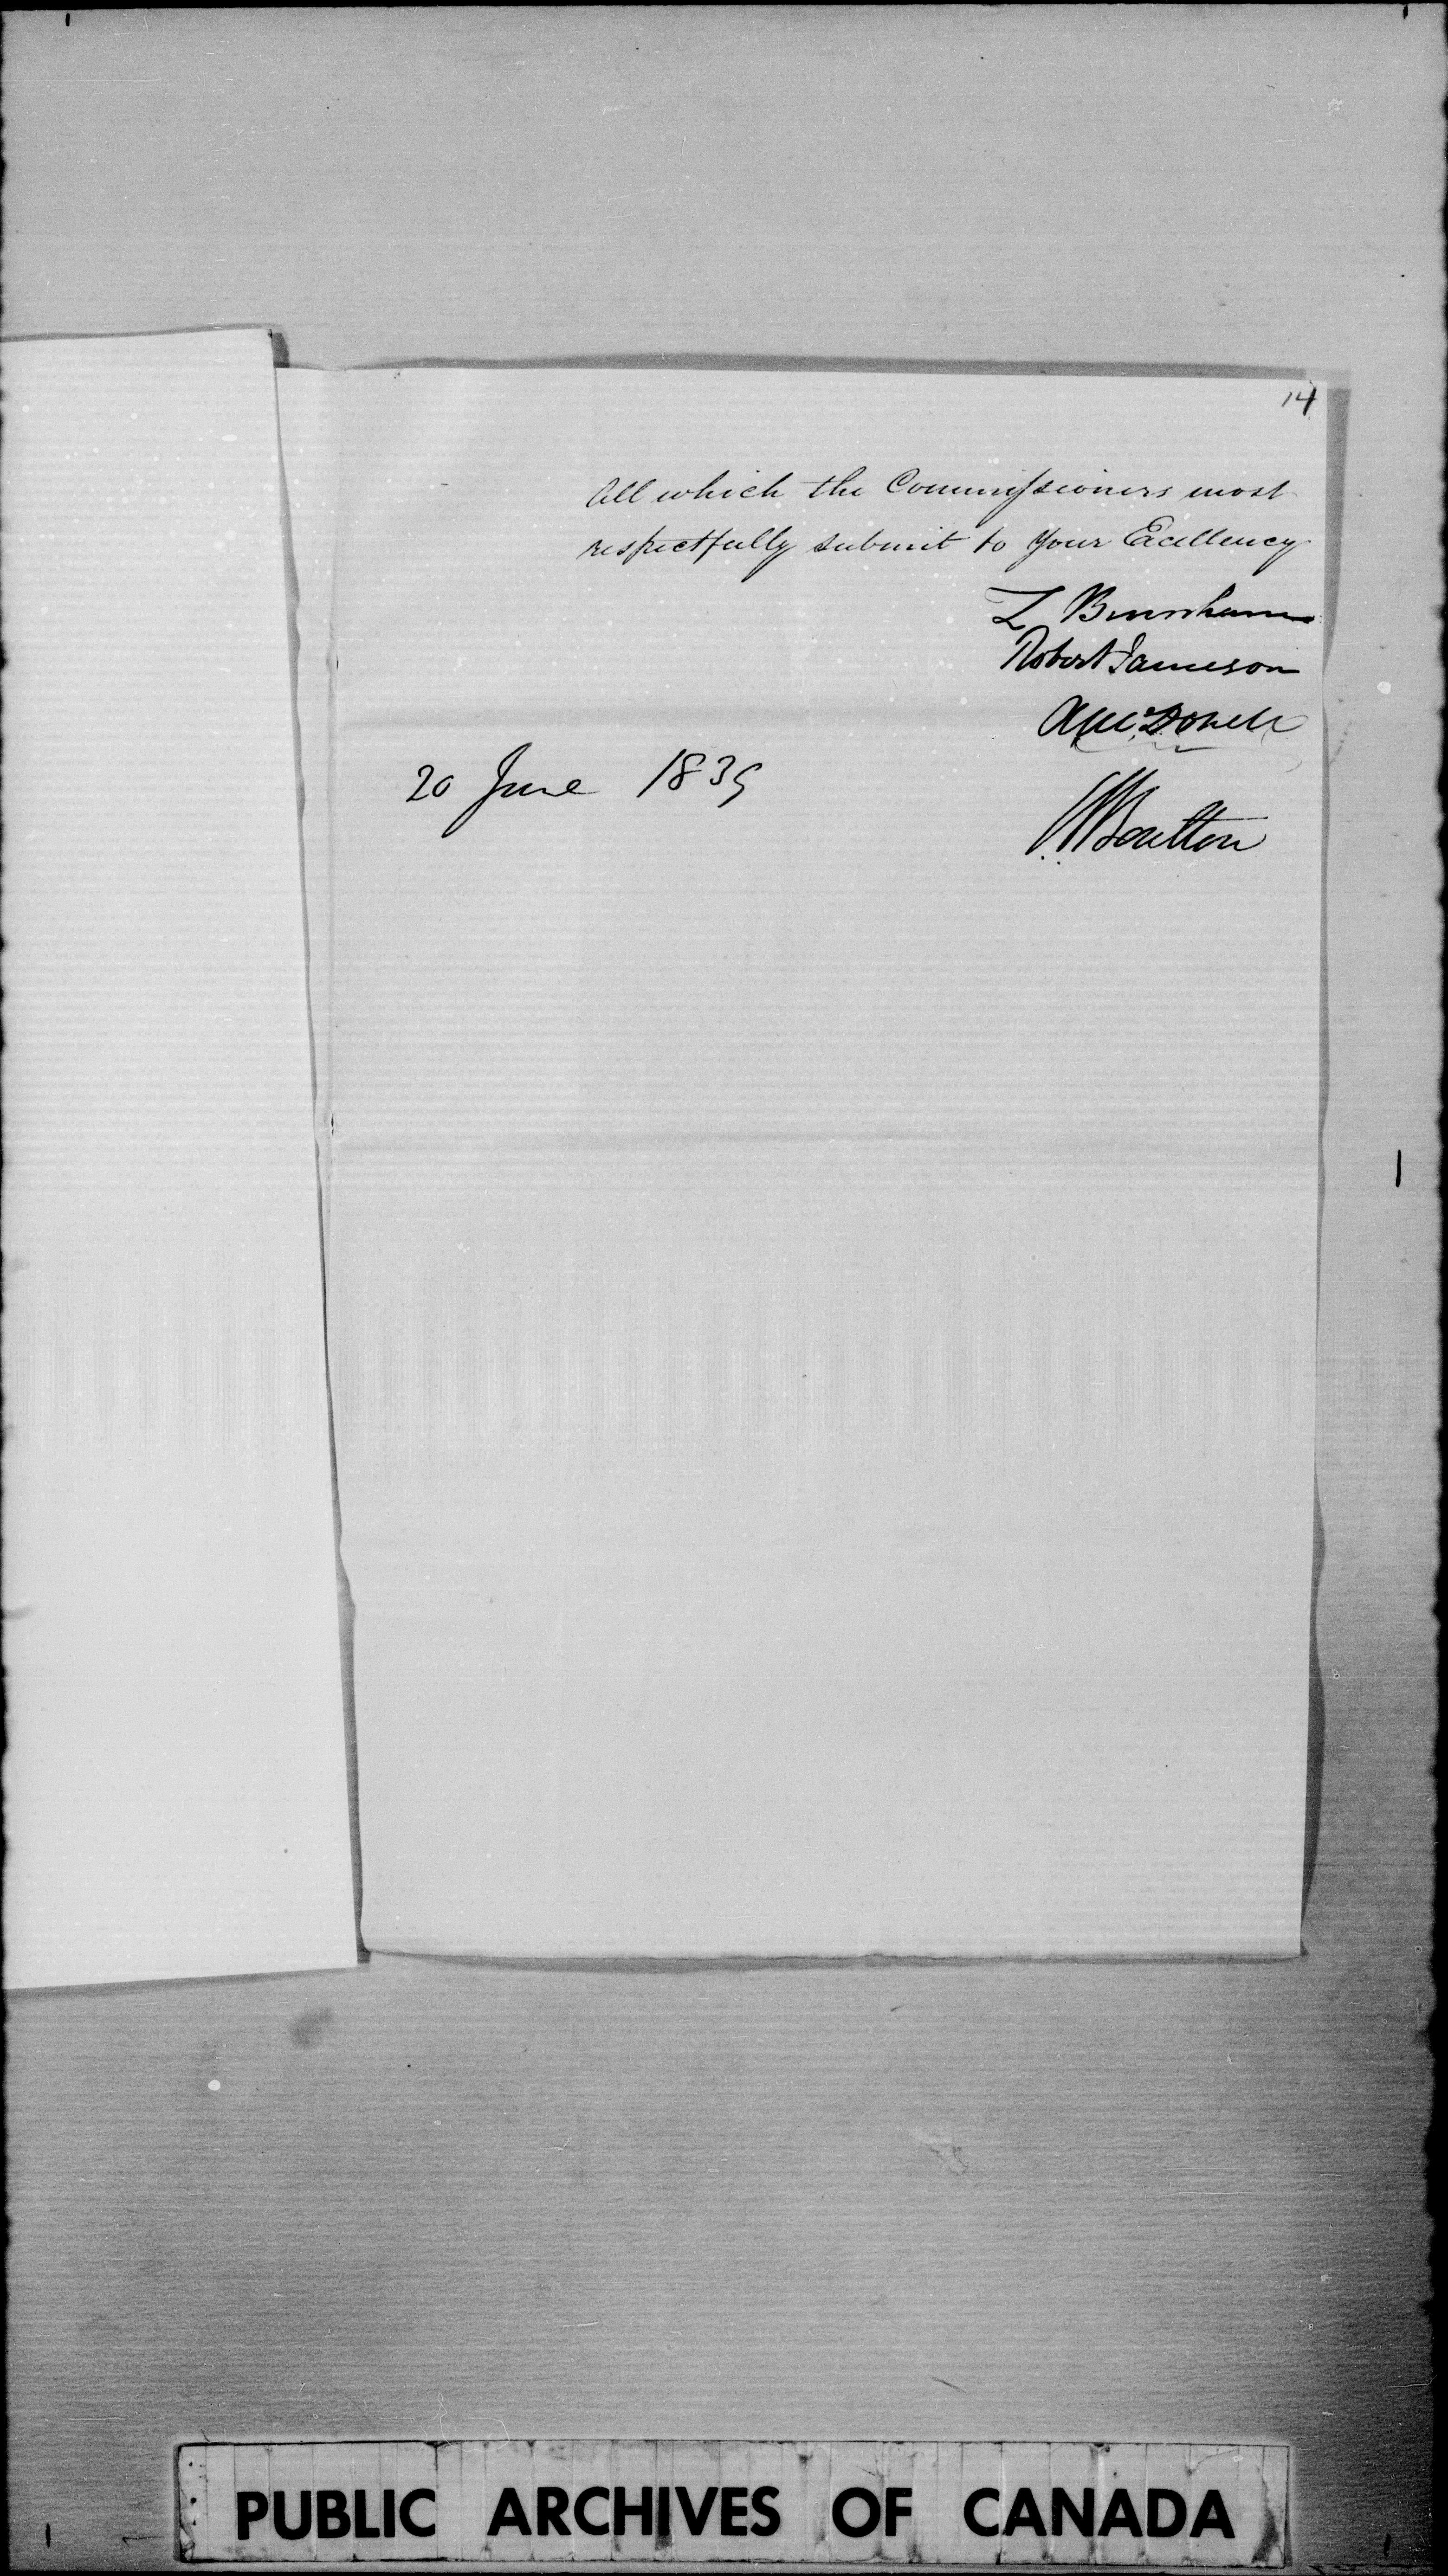 14
All which the Commissioners most
respectfully submit to Your Excellency
Z Burnham
Robert Jameson
A McDonell
20 June 1839
Boulton
PUBLIC ARCHIVES OF CANADA